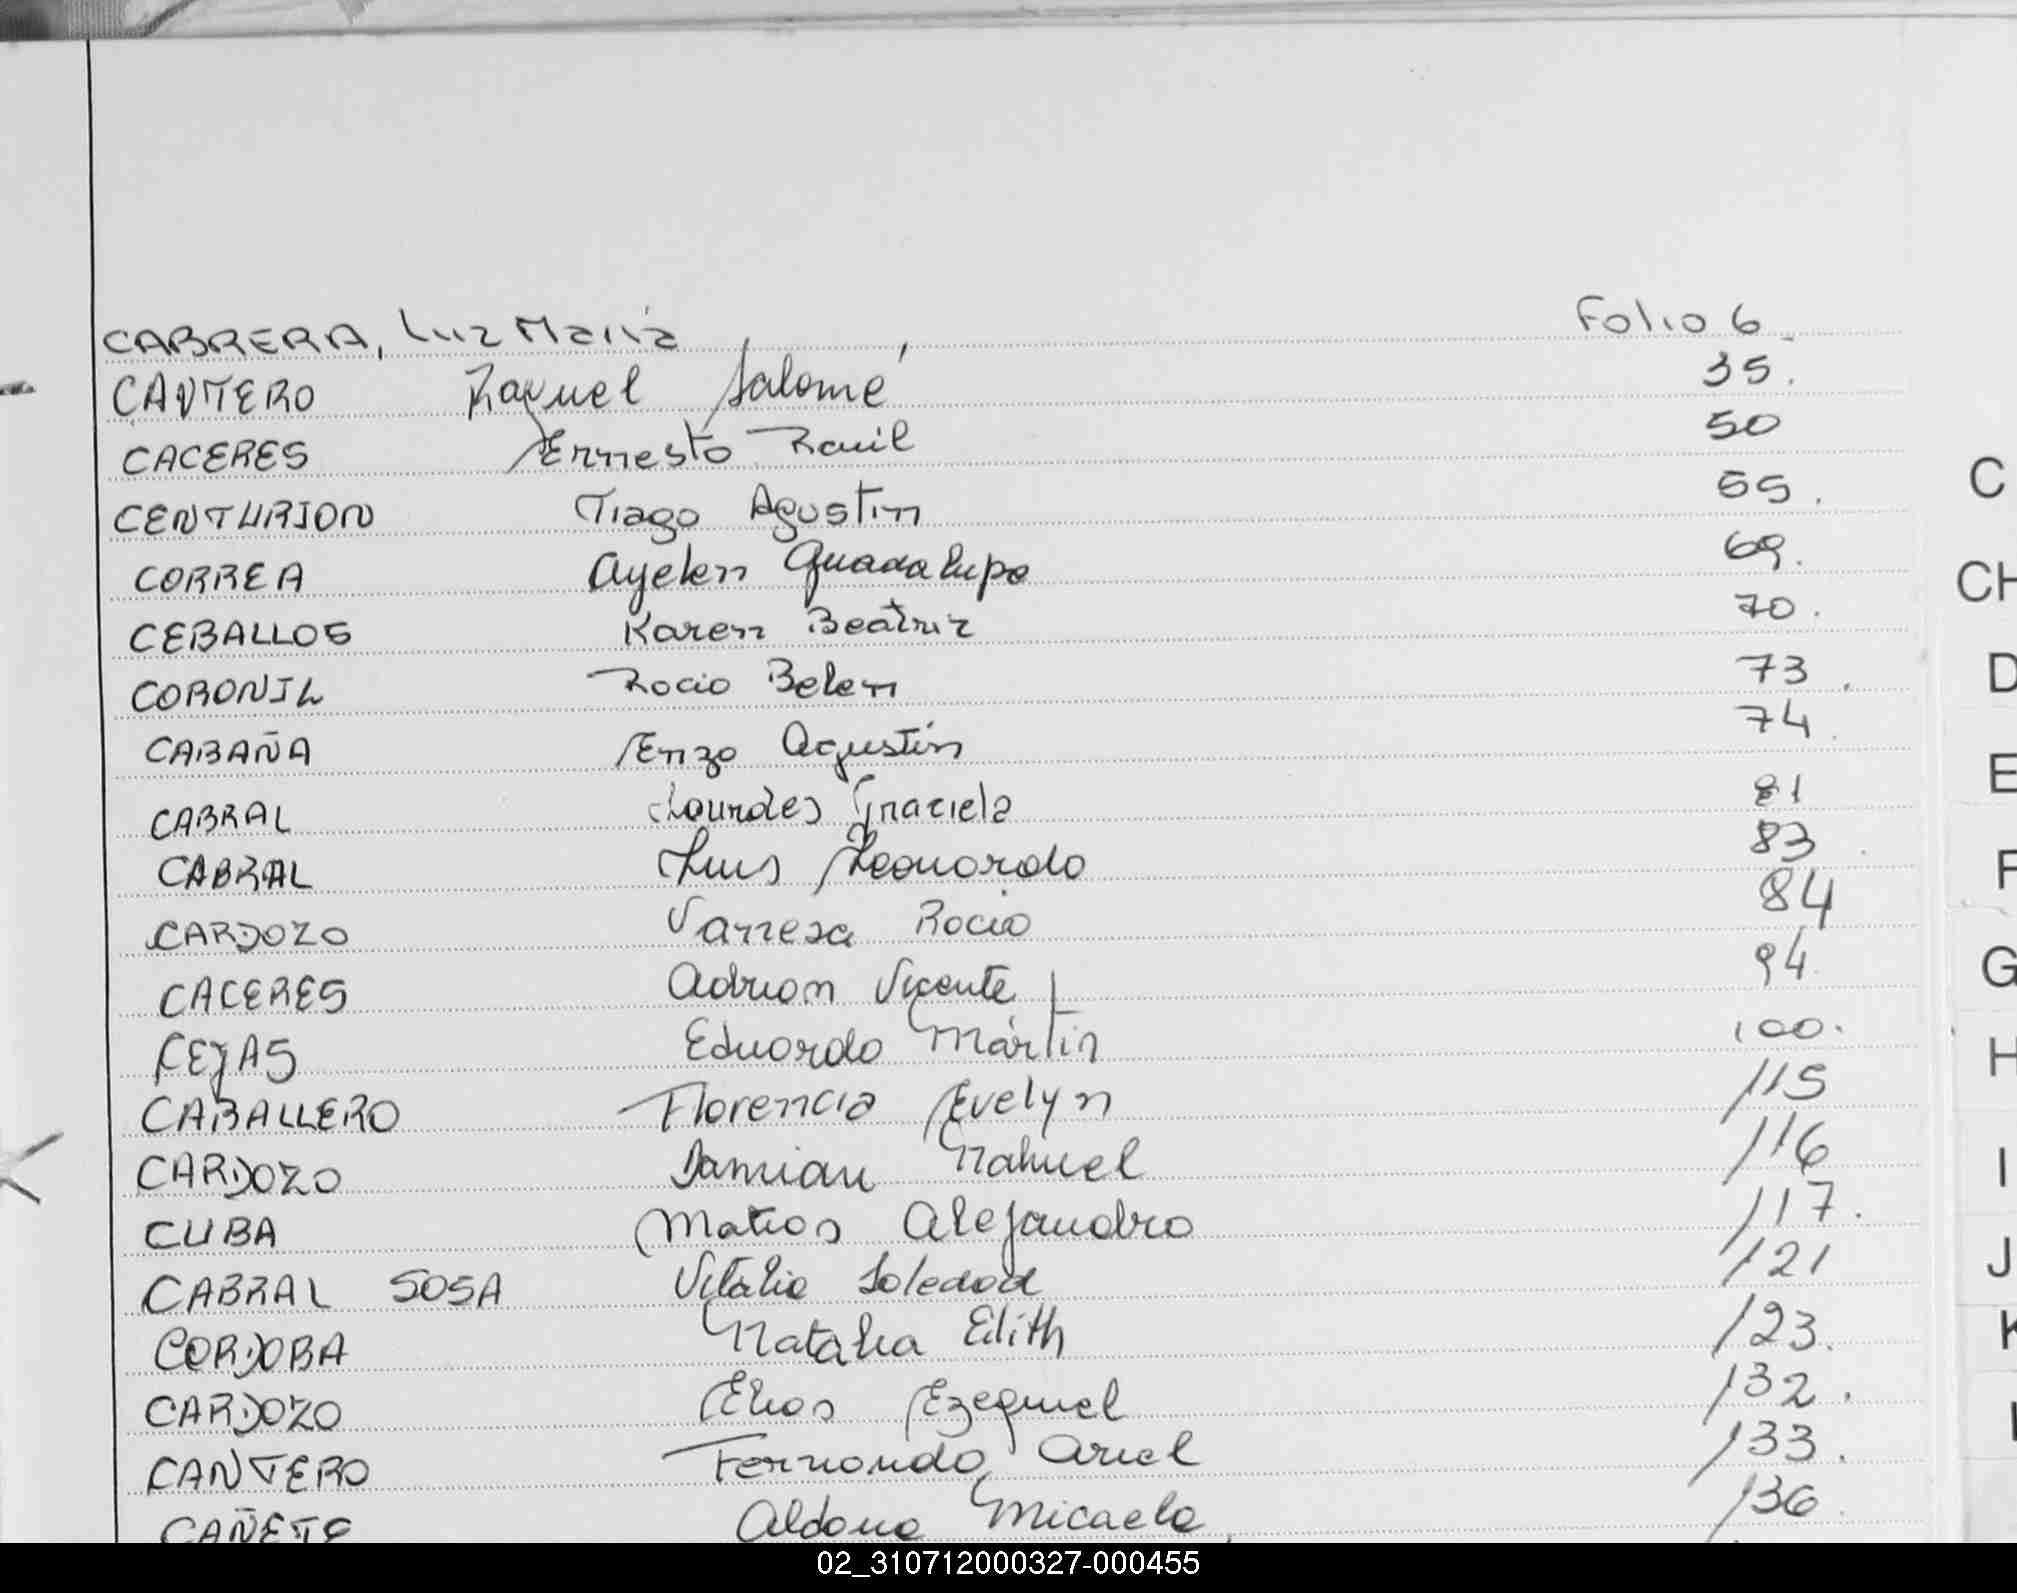 CABRERA, Luz María Folio 6
CANTERO Raquel Salomé 35.
CACERES Ernesto Raúl 50
CENTURION Tiago Agustin 55.
CORREA Ayelen Guadalupe 69.
CEBALLOS Karen Beatriz 70.
CORONIL Rocio Belen 73.
CABAÑA Enzo Agustín 74.
CABRAL Lourdes Graciela 81
CABRAL Luis Leonardo 83.
CARDOZO Vanesa Rocio 84
CACERES Adrian Vicente 94
CEJAS Eduardo Martín 100.
CABALLERO Florencia Evelyn 115
CARDOZO Damian Nahuel 116
CUBA Matias Alejandro 117.
CABRAL SOSA Vitalia Soledad 121
CORDOBA Natalia Edith 123.
CARDOZO Elias Ezequiel 132.
CANTERO Fernando Ariel 133.
CAÑETE Aldana Micaela 136.
C
CH
D
E
F
G
H
I
J
K
02_310712000327-000455